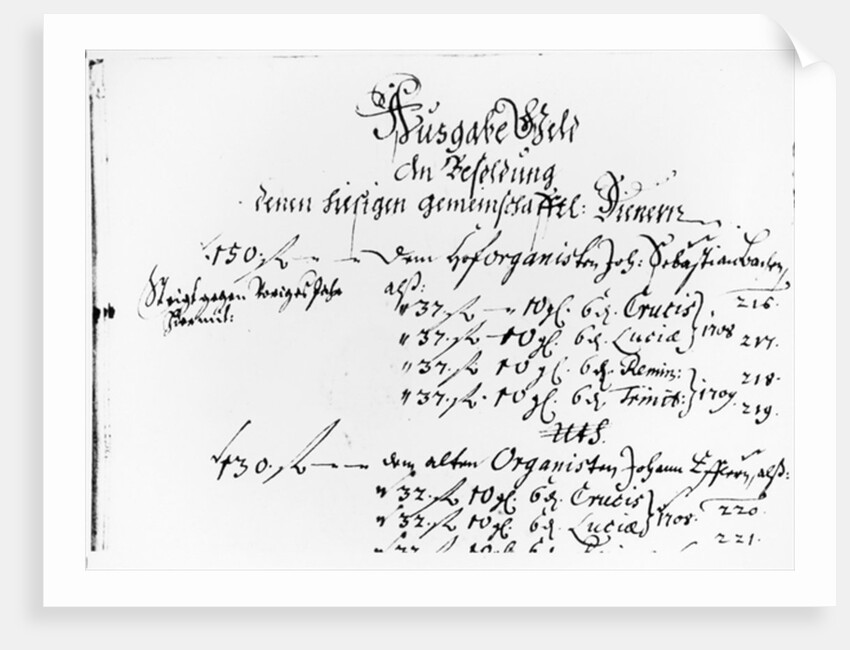 Ausgabe Geld
An Besoldung
denen hiesigen gemeinschafftl: Dienern
150. fl — — dem Hoforganisten Joh: Sebastian Bachen,
Steigt gegen voriges Jahr
alß:
" 37. fl — " 10 gl. 6 ₰. Crucis } 216.
" 37. fl — 10 gl. 6 ₰. Luciæ } 1708 217.
" 37. fl. 10 gl. 6 ₰. Remin: } 218.
" 37. fl. 10 gl. 6 ₰. Trinit: } 1709. 219.
130. fl — — dem alten Organisten Johann Efflern, alß:
" 32. fl 10 gl. 6 ₰. Crucis } 220.
" 32. fl. 10 gl. 6 ₰. Luciæ } 1708. 221.